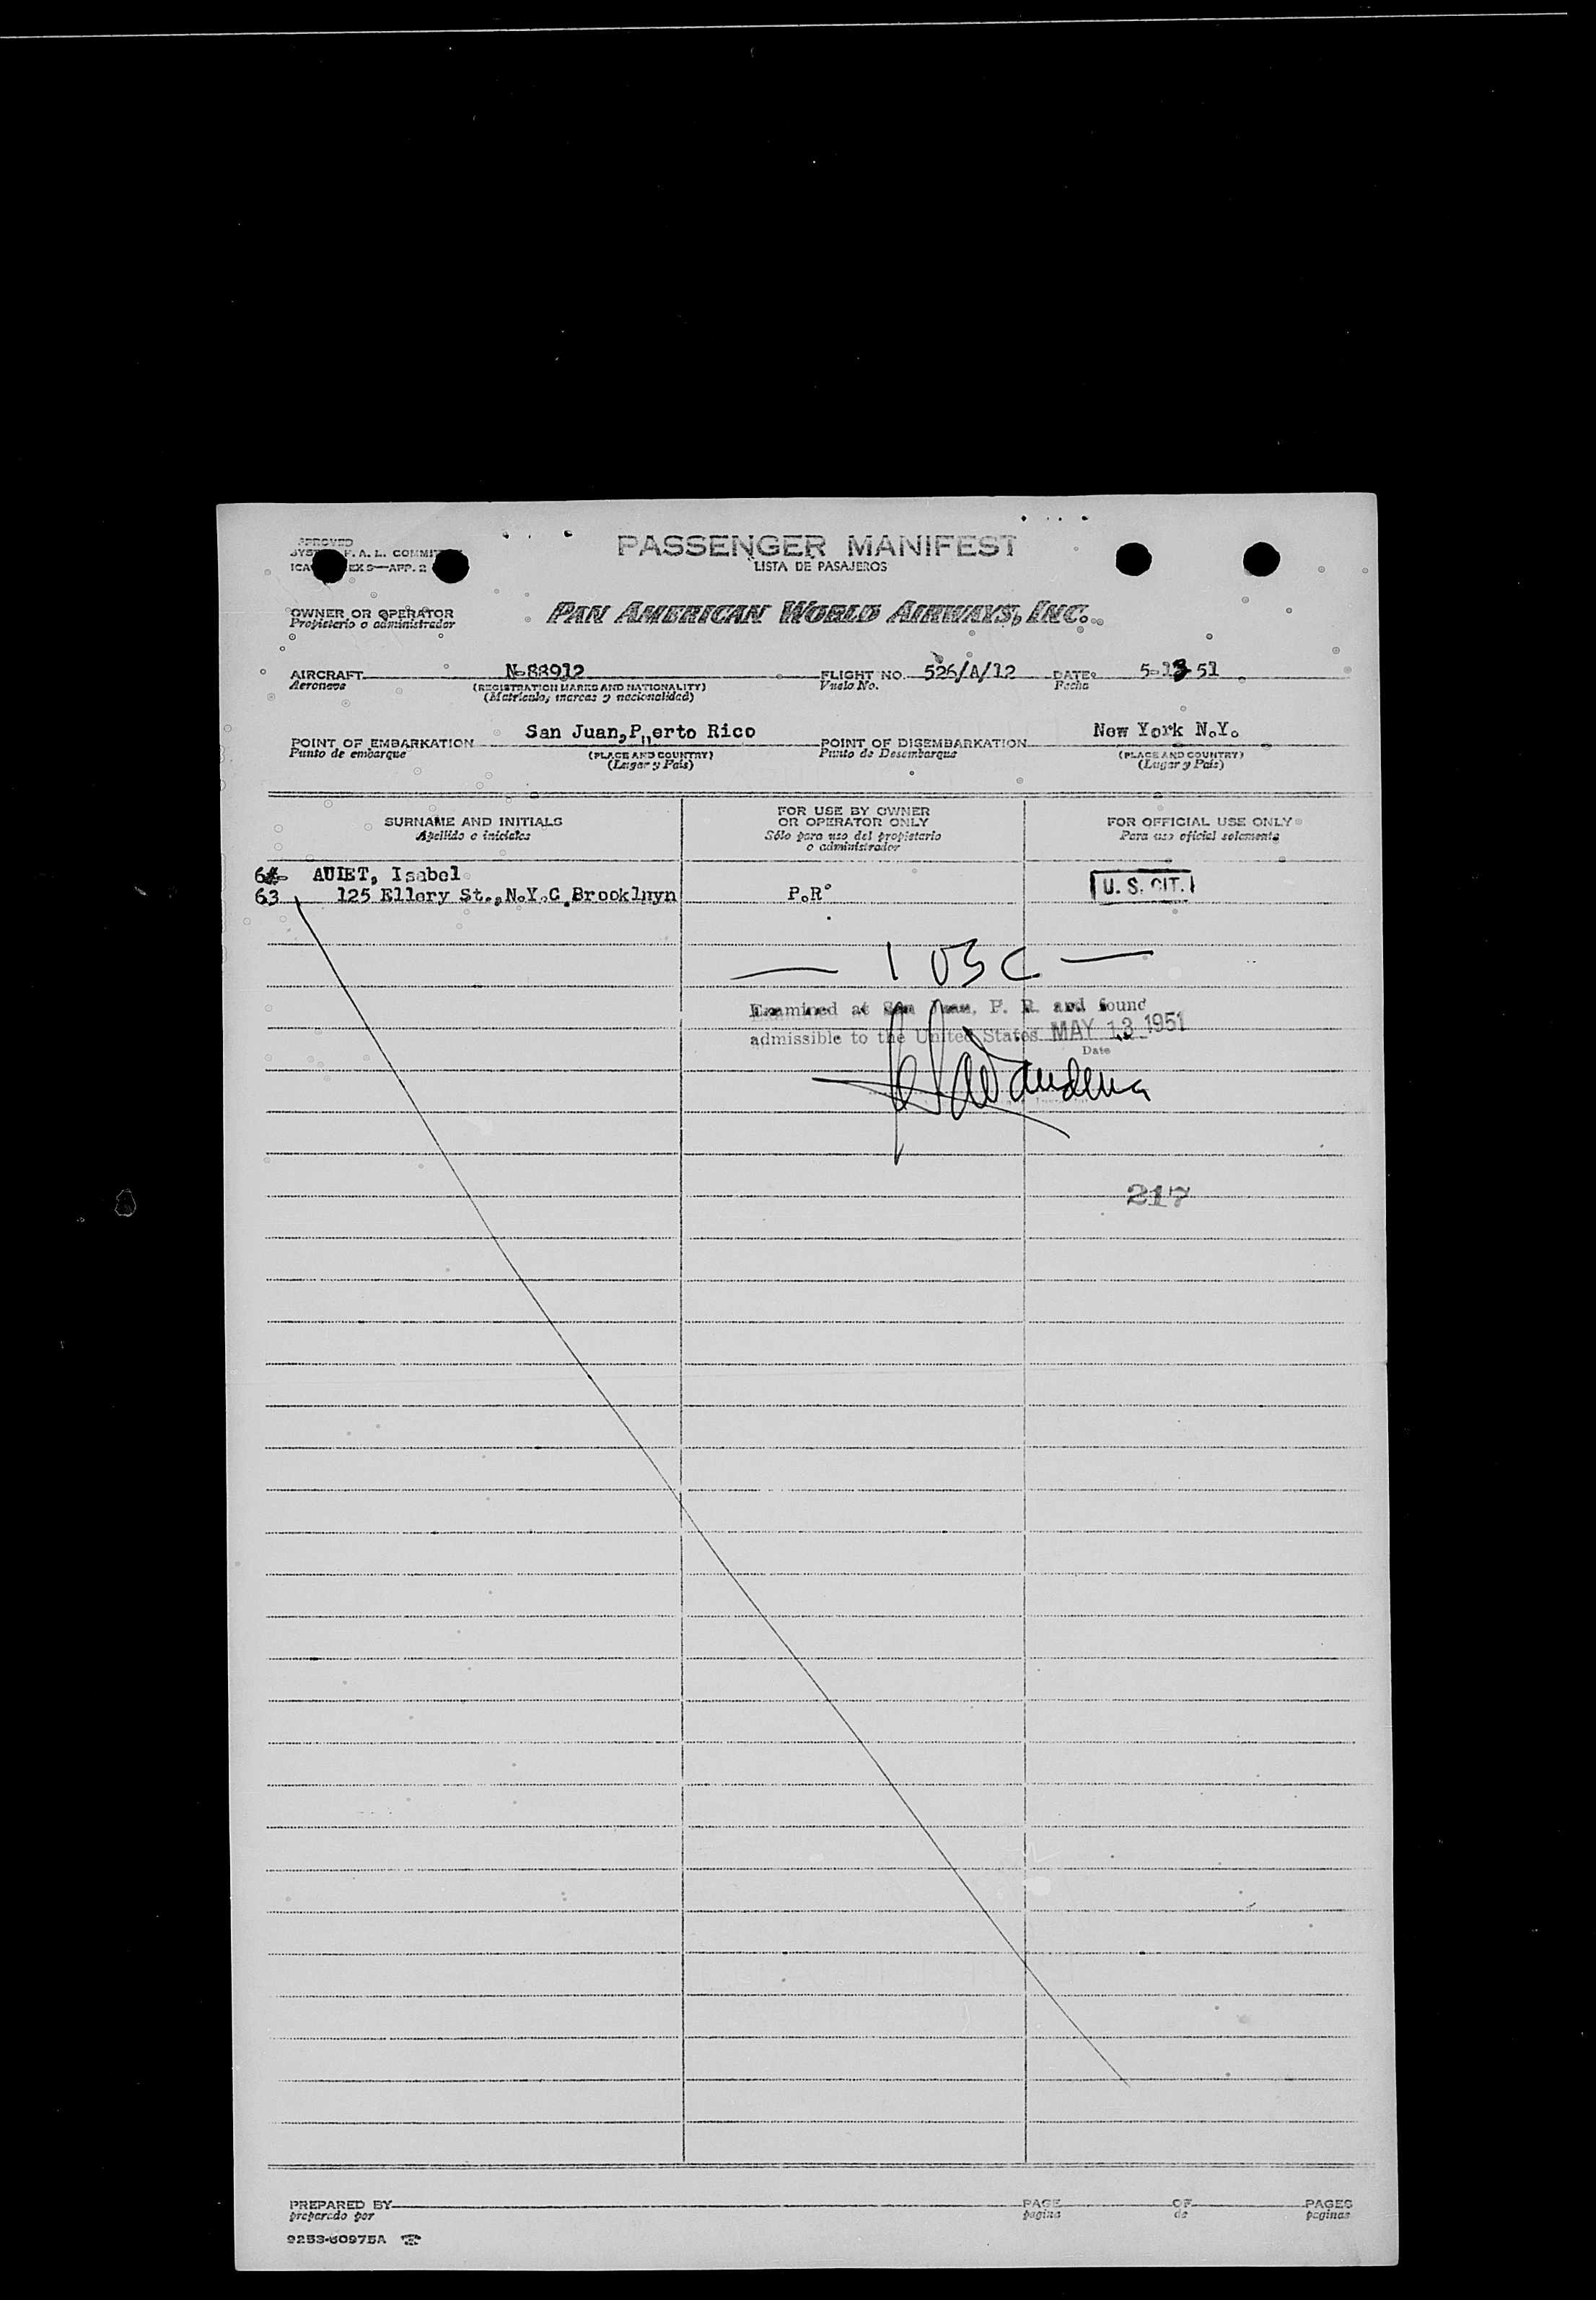 APPROVED
PASSENGER MANIFEST
F. A. L.
LISTA DE PASAJEROS
OWNER OR OPERATOR
Propietario o administrador
PAN AMERICAN WORLD AIRWAYS, INC.
AIRCRAFT N-88912 FLIGHT NO. 526/A/12 DATE 5-13-51
Aeronave (REGISTRATION MARKS AND NATIONALITY) Vuelo No. Fecha
(Matricula, marcas y nacionalidad)
POINT OF EMBARKATION San Juan, Puerto Rico POINT OF DISEMBARKATION New York N.Y.
Punto de embarque (PLACE AND COUNTRY) Punto de Desembarque (PLACE AND COUNTRY)
(Lugar y Pais) (Lugar y Pais)
SURNAME AND INITIALS FOR USE BY OWNER OR OPERATOR ONLY FOR OFFICIAL USE ONLY
Apellido e iniciales Sólo para uso del propietario o administrador Para uso oficial solamente
AUIET, Isabel
63 125 Ellery St., N.Y.C. Brooklnyn P.R. U. S. CIT.
Examined at San Juan, P. R. and found
admissible to the United States MAY 13 1951
Date
217
PREPARED BY PAGE OF PAGES
preparado por pagina de paginas
9253-60975A